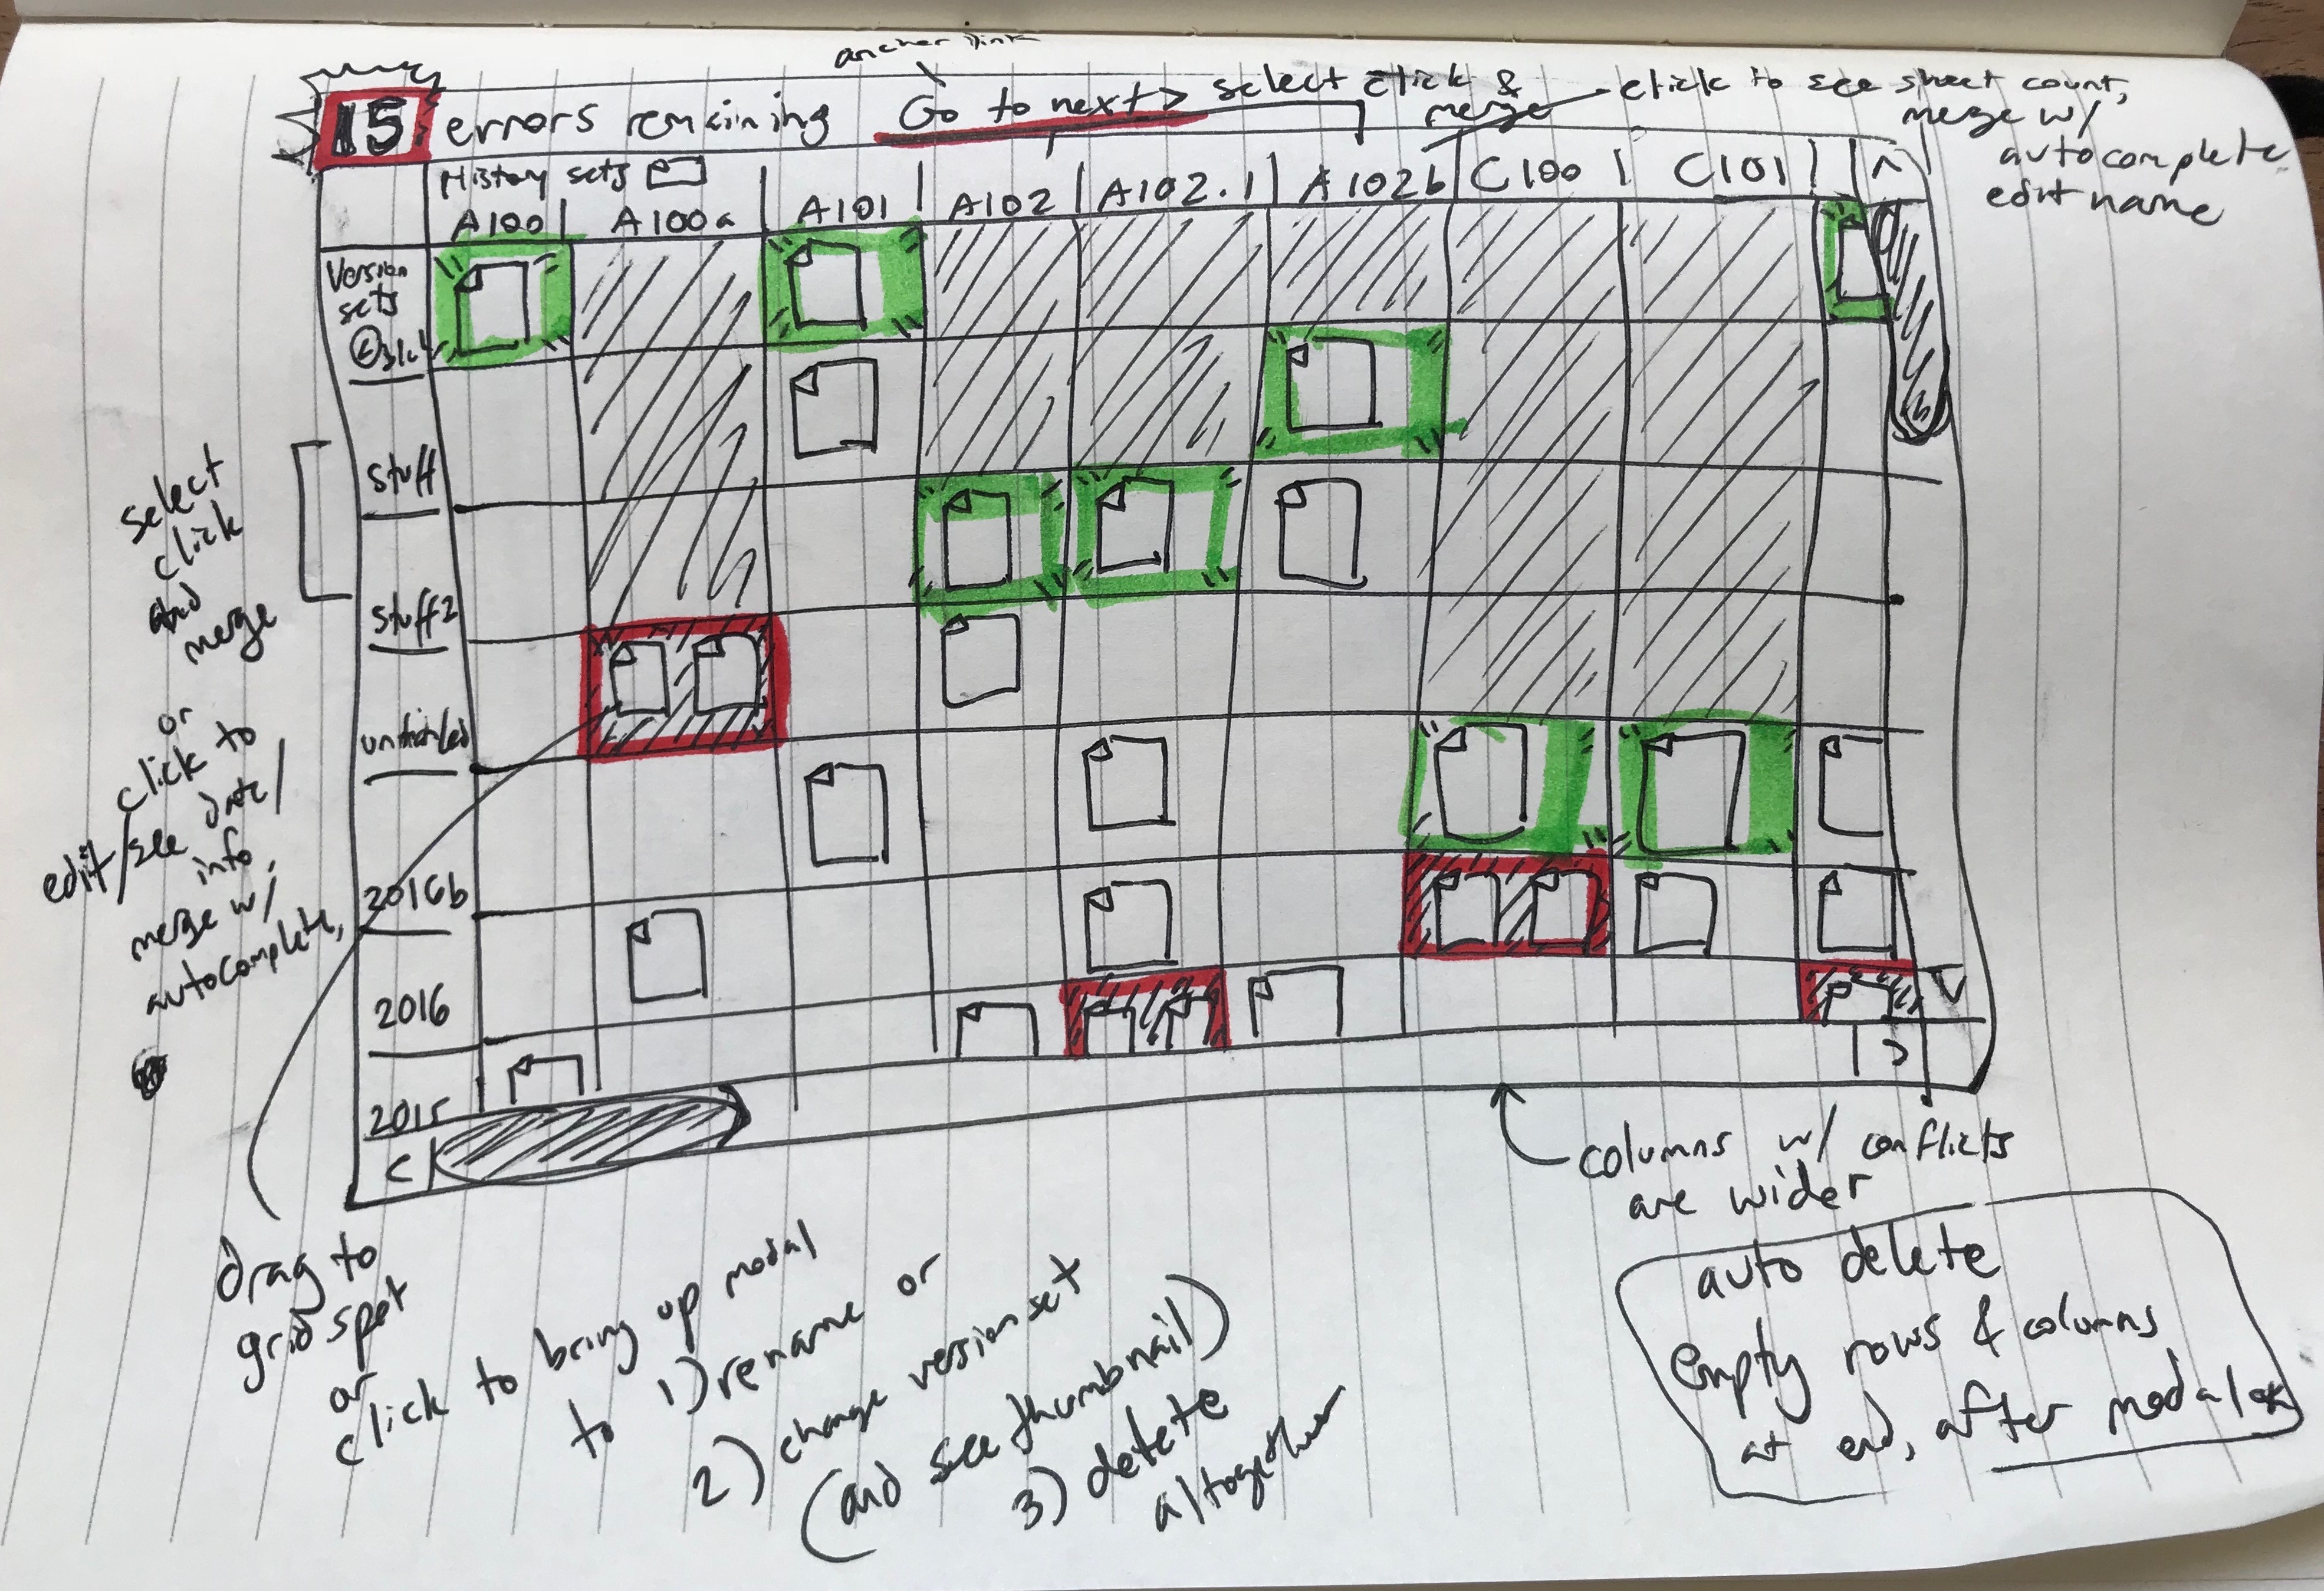 anchor link
15 errors remaining Go to next > select click & merge
click to see sheet count,
merge w/
autocomplete
edit name
History sets
A100 A100a A101 A102 A102.1 A102b C100 C101
Version
sets
stuff
stuff2
untitled
2016b
2016
2015
select
click
and
merge
or
click to
edit/see date/
info,
merge w/
autocomplete,
drag to
grid spot
or
click to bring up modal
to 1) rename or
2) change version set
(and see thumbnail)
3) delete
altogether
columns w/ conflicts
are wider
auto delete
empty rows & columns
at end, after modal